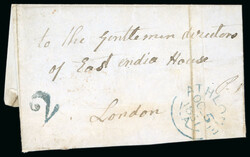 to the Gentlemen directors
of East india House
London
2